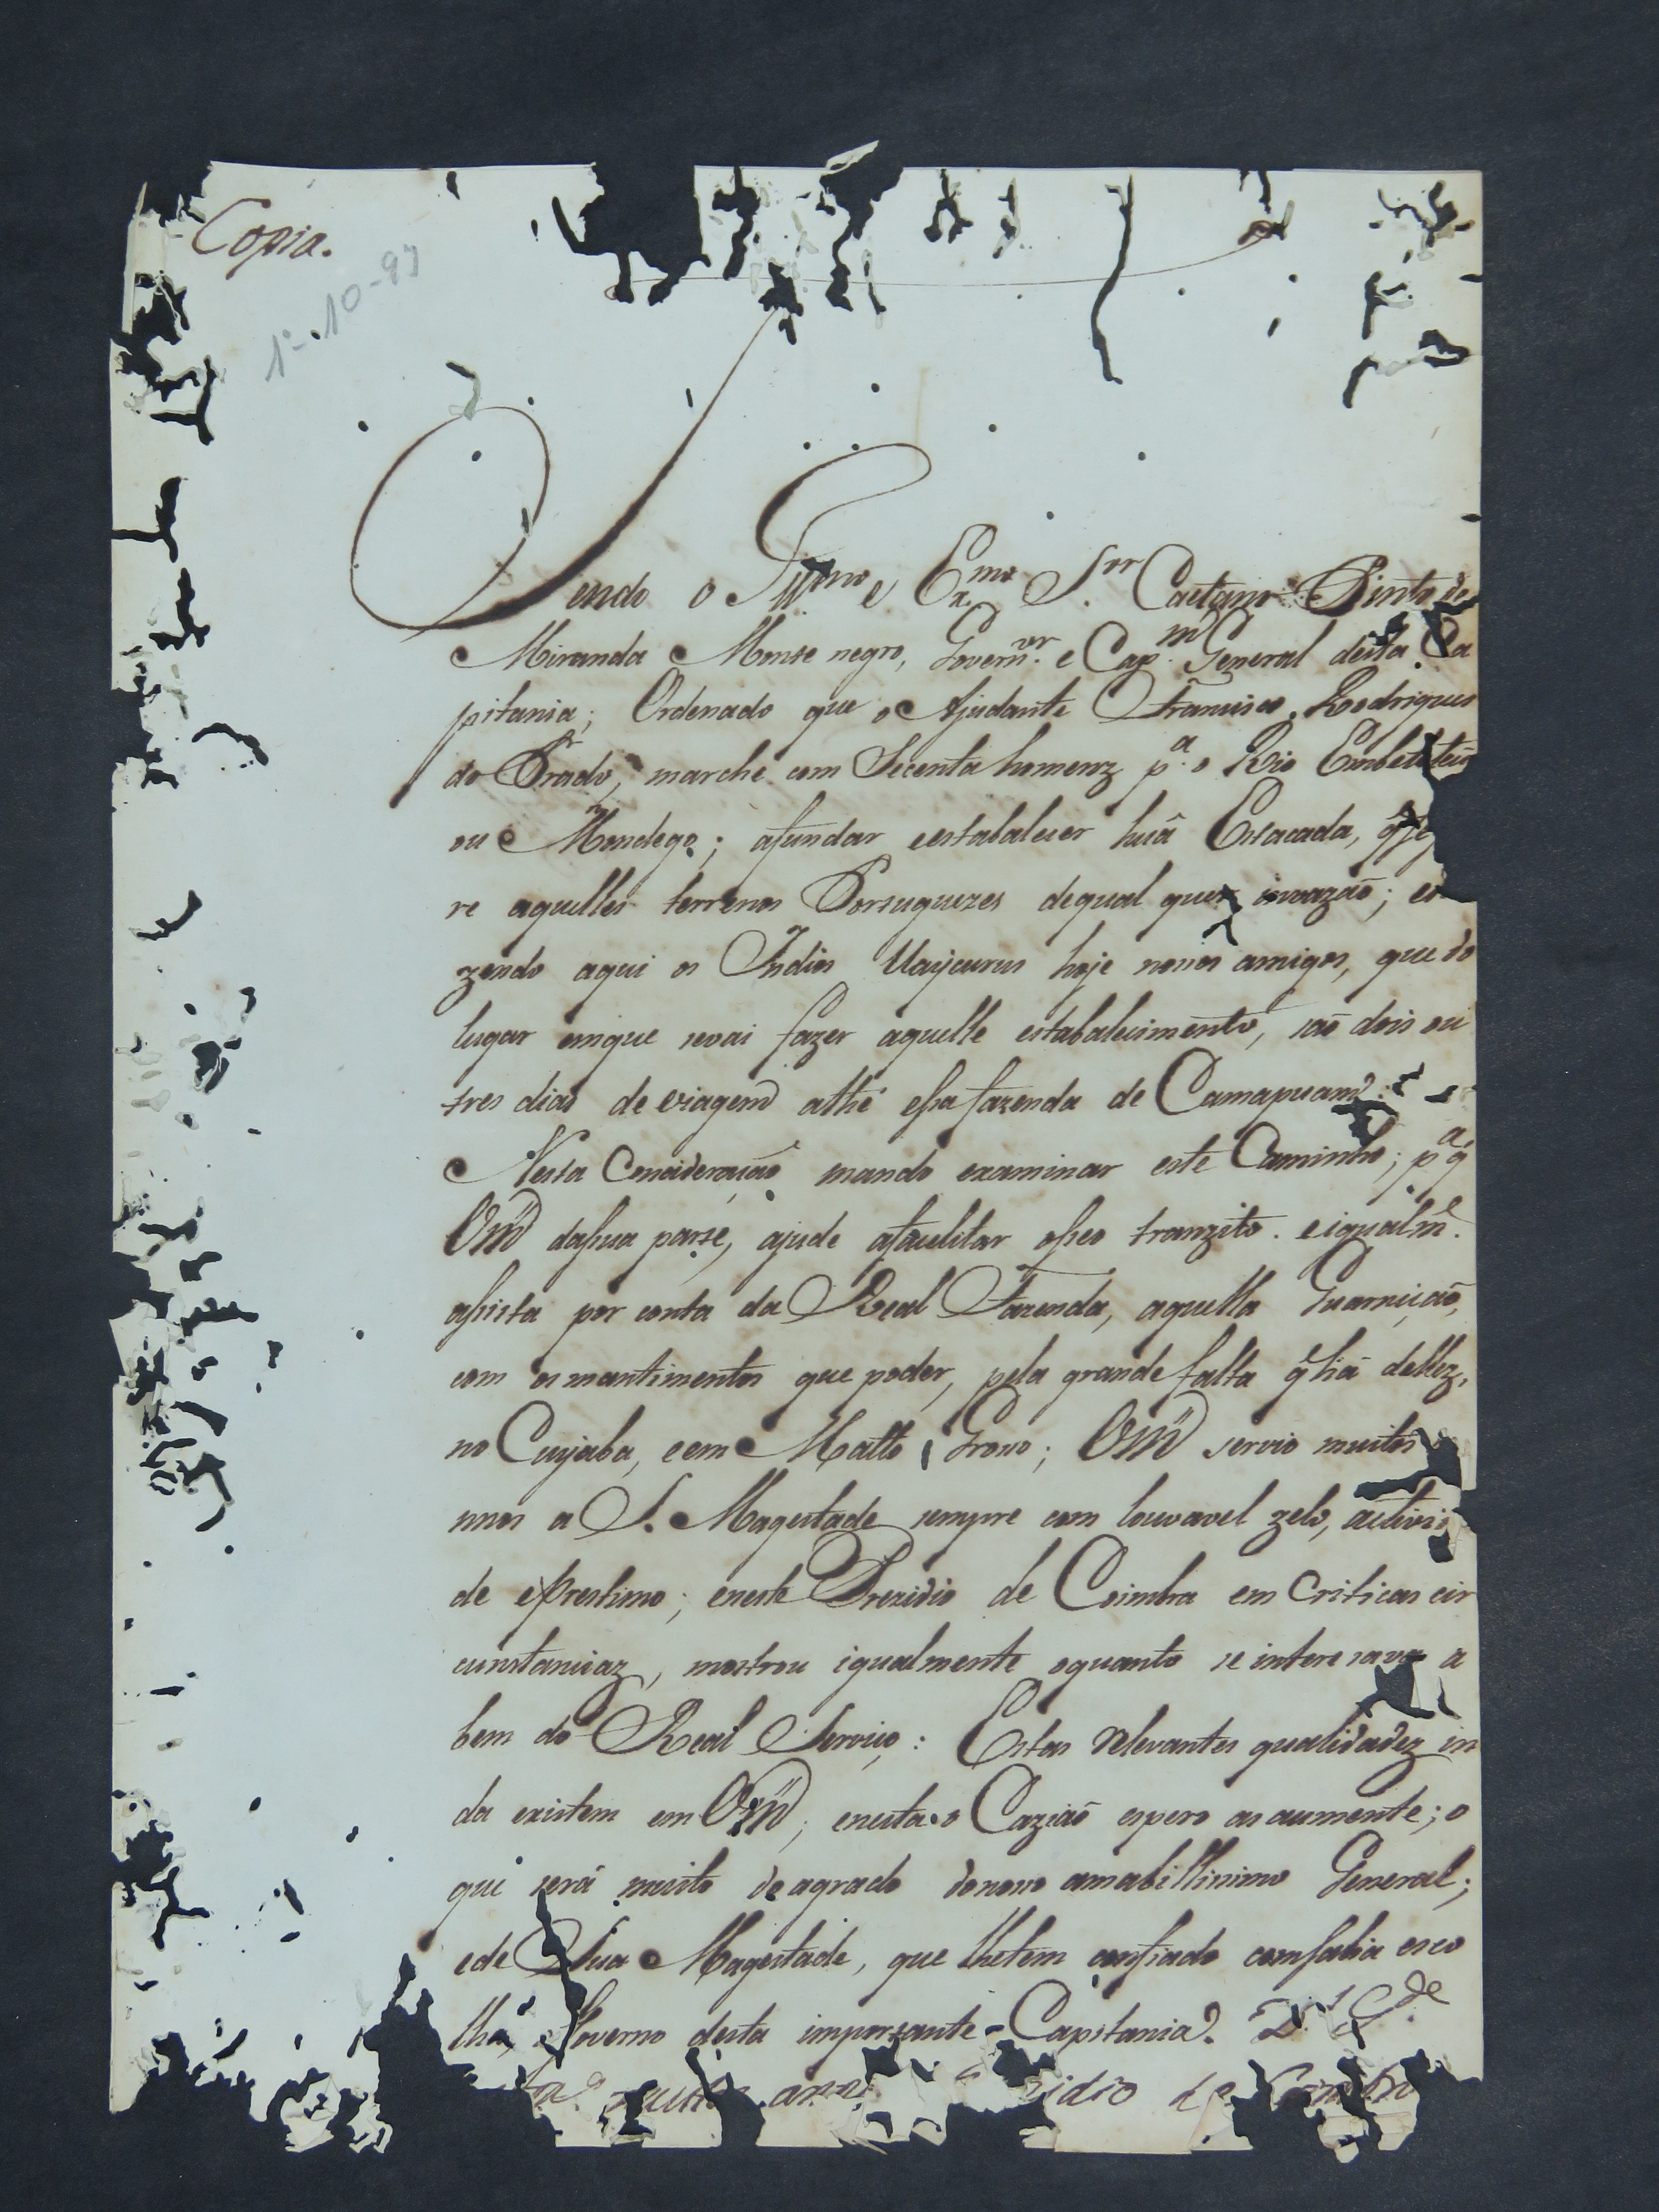 Copia.
1º-10-97
Tendo o Illmo e Exmo Snr Caetano Pinto de
Miranda Monte negro, Governor. e Capm General desta Ca
pitania; Ordenado que o Ajudante Francisco Rodrigues
do Prado, marche com Secenta homenz pa. o Rio Embateteú
ou Mondego; afundar eestabalecer huã Estacada,
re aquelles terrenos Portuguezes dequal quer invazaõ; e
zendo aqui os Indios Uaycurus hoje nossos amigos, que do
lugar emque sevai fazer aquelle estabalecimento, saõ dois ou
tres dias de viagem athé essa fazenda de Camapuam:
Nesta Concideraçaõ mando examinar este Caminho; pa q̃
Vm̃ dasua parte, ajude afacelitar esseo tranzito. eigualme.
assista por conta da Real Fazenda, aquella Guarniçaõ,
com osmantimentos que poder, pela grande falta q̃ há dellez,
no Cuyaba, eem Matto Grosso; Vm̃ servio muitos
nnos a S. Magestade sempre com louvavel zelo, activi
de eprestimo; eneste Prezidio de Coimbra em Criticas cir
cunstanciaz, mostrou igualmente oquanto se interesava a
bem do Real Serviço: Estas relevantes qualidadez in
da existem em Vm̃, enesta o Caziaõ espero as aumente; o
que será muito de agrado donosso amabillissimo General;
ede Sua Magestade, que lhetem confiado comsabia esco
lha, o Governo desta importante Capitania. Ds. Gde
ms. muitos ann idio de Coimbra